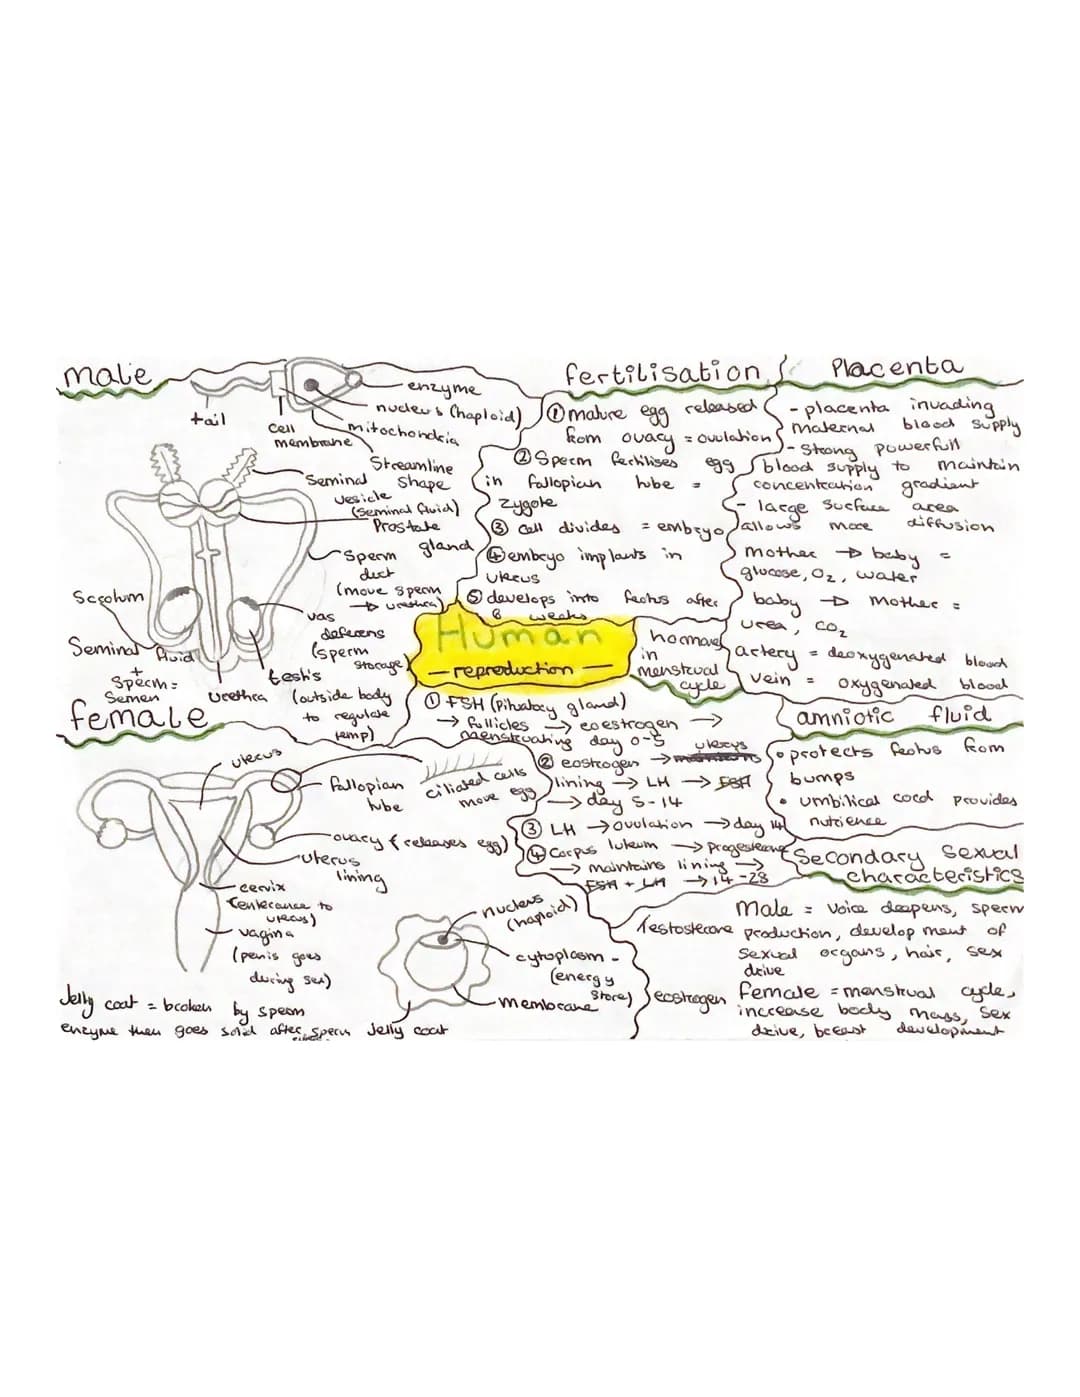 male
enzyme
nucleus (haploid)
mitochondria
tail
cell
membrane
Streamline
Shape
Seminal
vesicle
(seminal fluid)
Prostate
gland
Sperm
duct
(move sperm
→ urethra)
Scrotum
vas
deferens
(sperm
storage)
Seminal fluid
+
Sperm =
Semen
urethra
testis
(outside body
to regulate
temp)
fertilisation
① mature egg released
from ovary = ovulation
② Sperm fertilises egg
in fallopian tube =
zygote
③ cell divides = embryo
④ embryo implants in
uterus
⑤ develops into feotus after
8 weeks
Placenta
- placenta invading
maternal blood supply
- Strong powerfull
blood supply to maintain
concentration gradient
- large surface area
allows more diffusion
mother → baby =
glucose, O₂, water
baby → mother =
urea, CO₂
artery = deoxygenated blood
vein = oxygenated blood
Human
— reproduction —
hormones
in
menstrual
cycle
① FSH (pituatory gland)
→ follicles → eoestrogen →
menstruating day 0-5
② eostrogen → uterus
lining → LH → FSH
→ day 5-14
③ LH → ovulation → day 14
④ Corpus luteum → progesterone
→ maintains lining →
FSH + LH → 14-28
amniotic fluid
• protects feotus from
bumps
• umbilical cord provides
nutrience
Secondary Sexual
characteristics
Testosterone
Male = voice deepens, sperm
production, development of
sexual organs, hair, sex
drive
eostrogen
female = menstrual cycle,
increase body mass, sex
drive, breast development
female
uterus
fallopian
tube
ciliated cells
move egg
ovary (releases egg)
uterus
lining
cervix
(enterance to
uterus)
vagina
(penis goes
during sex)
nucleus
(haploid)
cytoplasm -
(energy
store)
membrane
Jelly coat
Jelly coat = broken by sperm
enzyme then goes solid after sperm